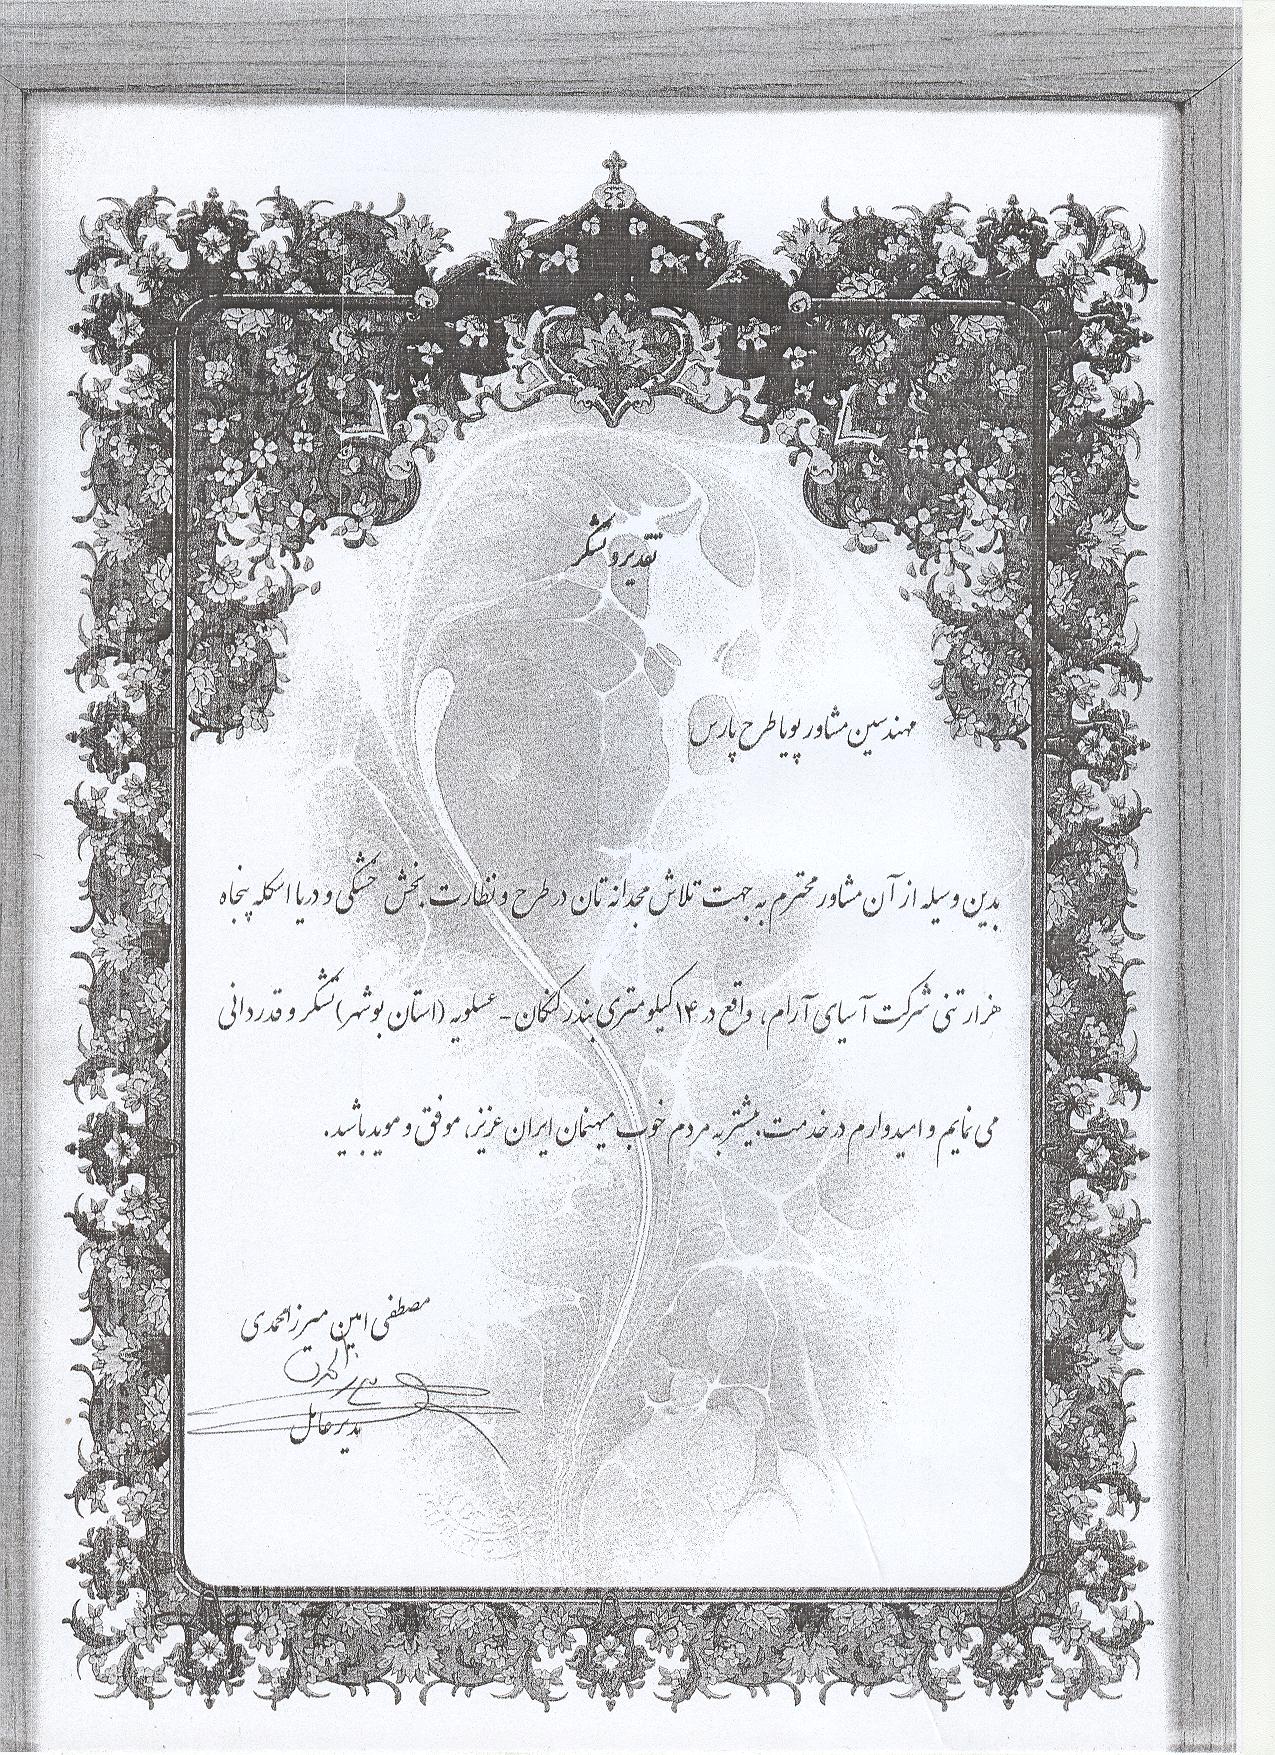 تقدیر و تشکر
مهندسین مشاور پویا طرح پارس
بدین وسیله از آن مشاور محترم به جهت تلاش مجدانه تان در طرح و نظارت بخش خشکی و دریا اسکله پنجاه
هزار تنی شرکت آسیای آرام، واقع در ۱۴ کیلومتری بندر کنگان - عسلویه (استان بوشهر) تشکر و قدردانی
می نمایم و امیدوارم در خدمت بیشتر به مردم خوب میهنمان ایران عزیز، موفق و موید باشید.
مصطفی امین میرزامحمدی
مدیر عامل